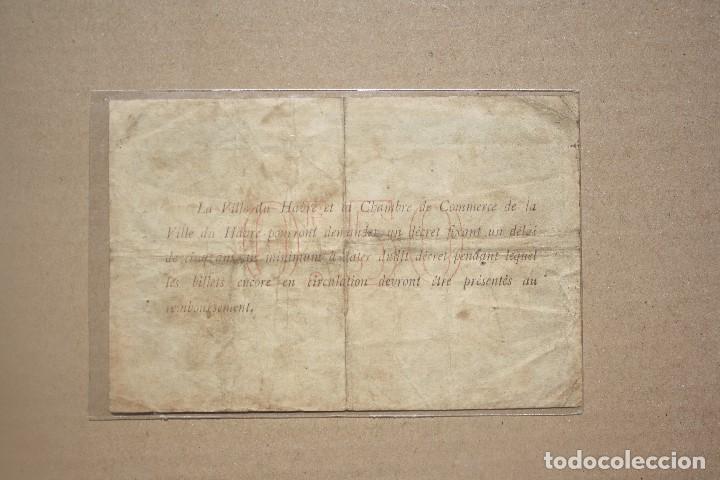 La Ville du Havre et la Chambre de Commerce de la
Ville du Havre pourront demander un décret fixant un délai
de cinq ans au minimum à dater dudit décret pendant lequel
les billets encore en circulation devront être présentés au
remboursement.
0F50
todocoleccion